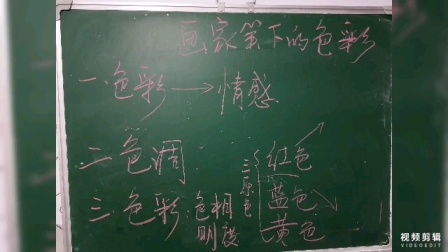 画家笔下的色彩
一.色彩→情感
二色调
三色彩 色相 明度
三原色 红色 蓝色 黄色
视频剪辑
VIDEOEDIT